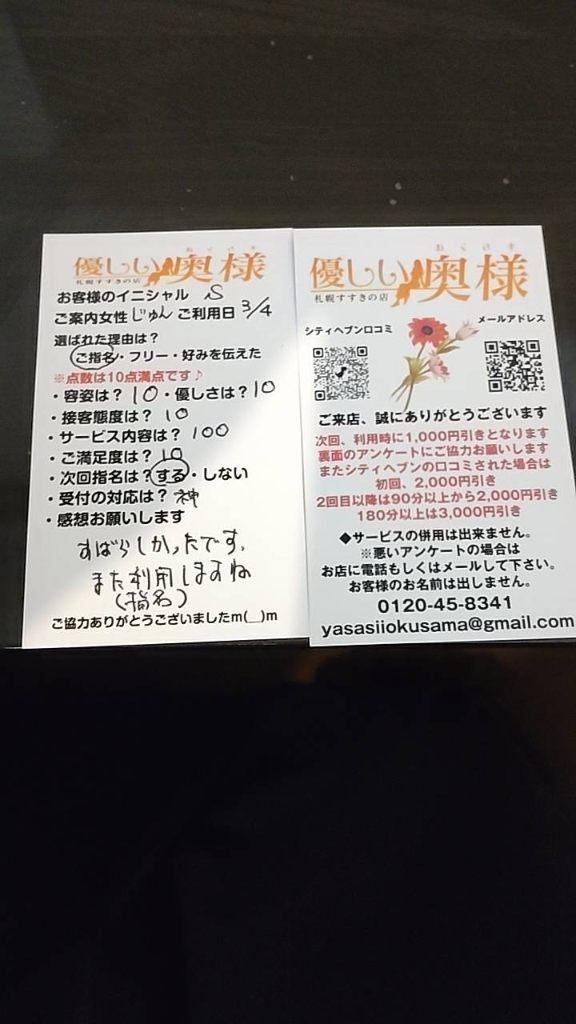 おくさま
優しい奥様
札幌すすきの店
お客様のイニシャル S
ご案内女性 じゅん ご利用日 3/4
選ばれた理由は？
ご指名・フリー・好みを伝えた
※点数は10点満点です♪
・容姿は？ 10 ・優しさは？ 10
・接客態度は？ 10
・サービス内容は？ 100
・ご満足度は？ 10
・次回指名は？ する・しない
・受付の対応は？ 神
・感想お願いします
すばらしかったです。
また利用しますね
(指名)
ご協力ありがとうございましたm(__)m
おくさま
優しい奥様
札幌すすきの店
シティヘブン口コミ
メールアドレス
ご来店、誠にありがとうございます
次回、利用時に1,000円引きとなります
裏面のアンケートにご協力お願いします
またシティヘブンの口コミされた場合は
初回、2,000円引き
2回目以降は90分以上から2,000円引き
180分以上は3,000円引き
◆サービスの併用は出来ません。
※悪いアンケートの場合は
お店に電話もしくはメールして下さい。
お客様のお名前は出しません。
0120-45-8341
yasasiiokusama@gmail.com